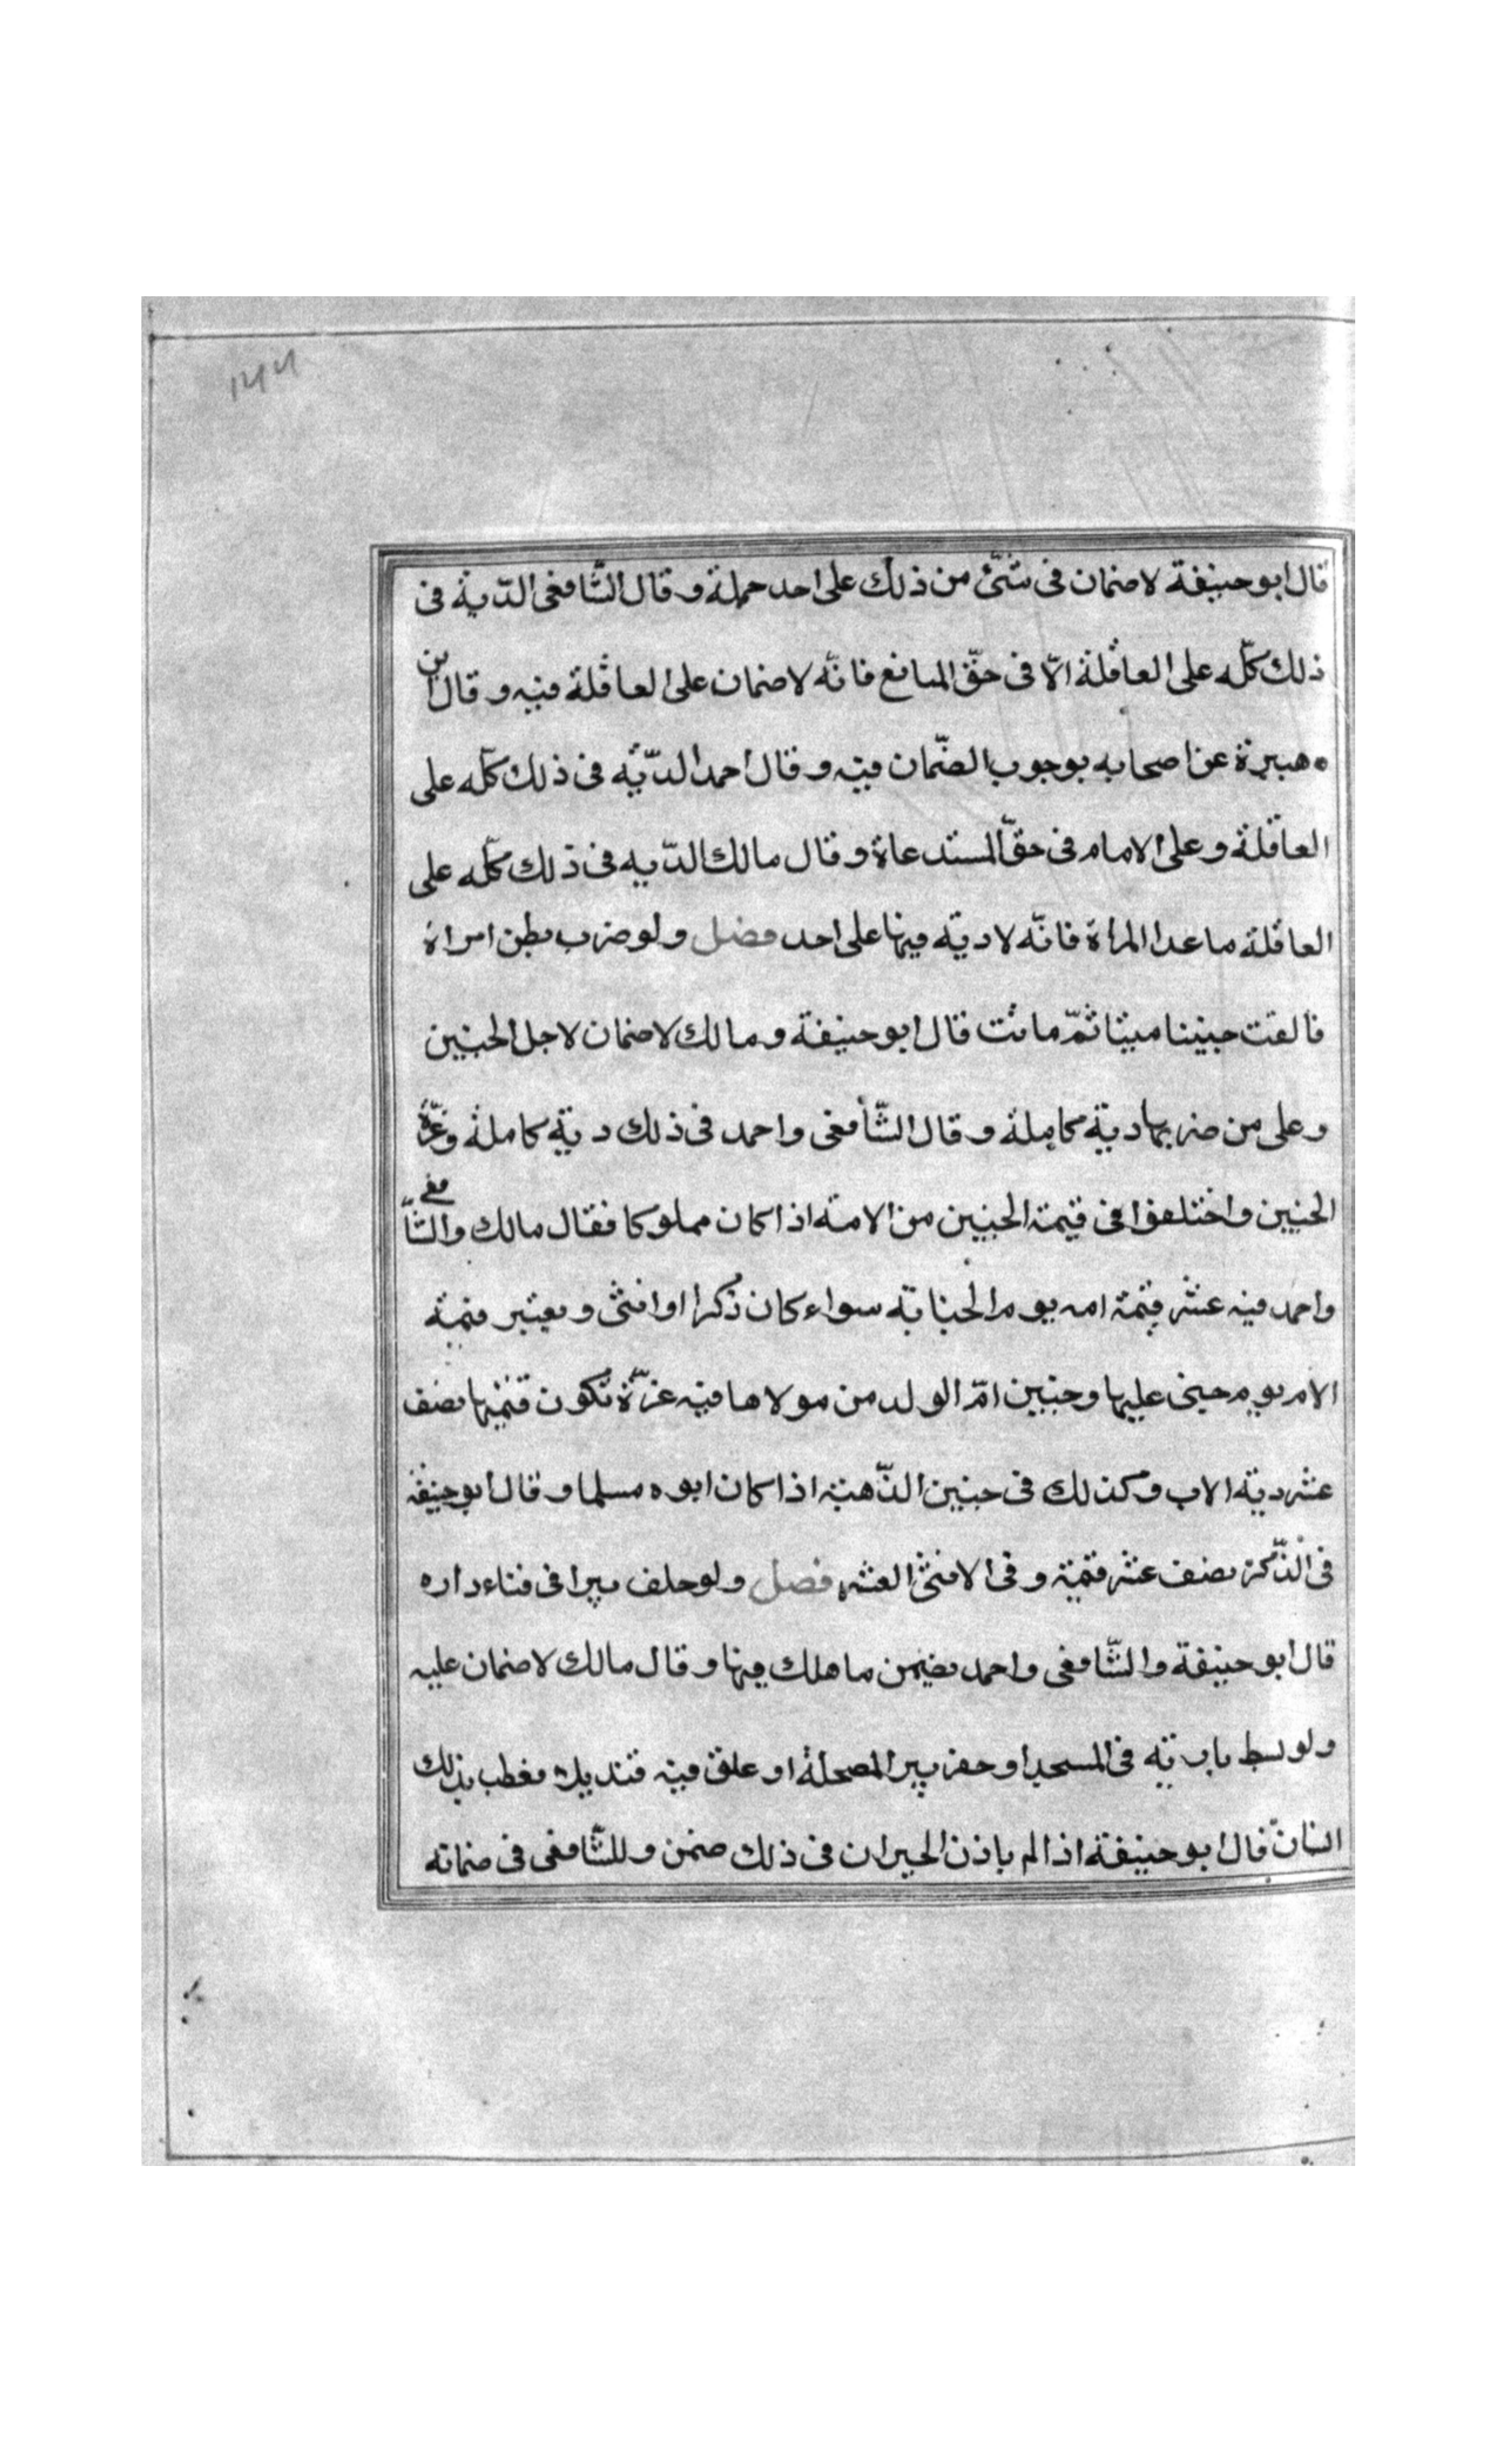 ١٢٢
قال ابو حنيفة لا ضمان فى شئ من ذلك على احد جملة و قال الشّافعى الدّية فى
ذلك كلّه على العاقلة الّا فى حقّ المبانغ فانّه لا ضمان على العاقلة فيه و قال ابن
هبيرة عن اصحابه بوجوب الضّمان فيه و قال احمد الدّيّه فى ذلك كلّه على
العاقلة و على الامام فى حقّ المستدعاة و قال مالك الدّيه فى ذلك كلّه على
العاقلة ما عدا المراة فانّه لا دية فيها على احد فصل و لو ضرب بطن امراة
فالقت جنينا ميتا ثمّ ماتت قال ابو حنيفة و مالك لا ضمان لاجل الجنين
و على من ضربها دية كاملة و قال الشّافعى و احمد فى ذلك دية كاملة و غرّة
الجنين و اختلفوا فى قيمة الجنين من الامة اذا كان مملوكا فقال مالك و الشّافعى
و احمد فيه عشر قيمة امه يوم الجناية سواء كان ذكرا او انثى و يعتبر قيمة
الام يوم جنى عليها و جنين امّ الولد من مولاها فيه غرّة تكون قيمتها نصف
عشر دية الاب و كذلك فى جنين الذّهبية اذا كان ابوه مسلما و قال ابو حنيفة
فى الذّكر نصف عشر قيمة و فى الانثى العشر فصل و لو حلف بيرا فى فناء داره
قال ابو حنيفة و الشّافعى و احمد يضمن ما هلك فيها و قال مالك لا ضمان عليه
و لو بسط بارية فى المسجد او حفر بير المصحلة او علق فيه قنديلا فعطب بذلك
انسان قال ابو حنيفة اذا لم ياذن الجيران فى ذلك ضمن و للشّافعى فى ضمانه